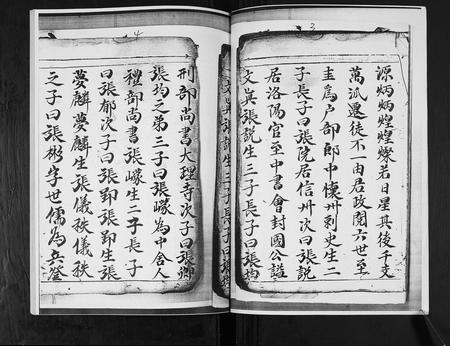 3
源炳炳煌煌燦若日星其後千支
萬派遷徒不一由君政閱六世至
圭爲户部郎中懐州刺史生二
子長子曰張院居信州次曰張説
居洛陽官至中書會封國公諡
文眞張説生三子長子曰張均
4
刑部尚書大理寺次子曰張
張均之弟三子曰張㠓為中舍人
禮部尚書張㠓生二子長子
曰張郁次子曰張鄞張鄞生張
夢麟夢麟生張儀秩儀秩
之子曰張彬字世儒為兵